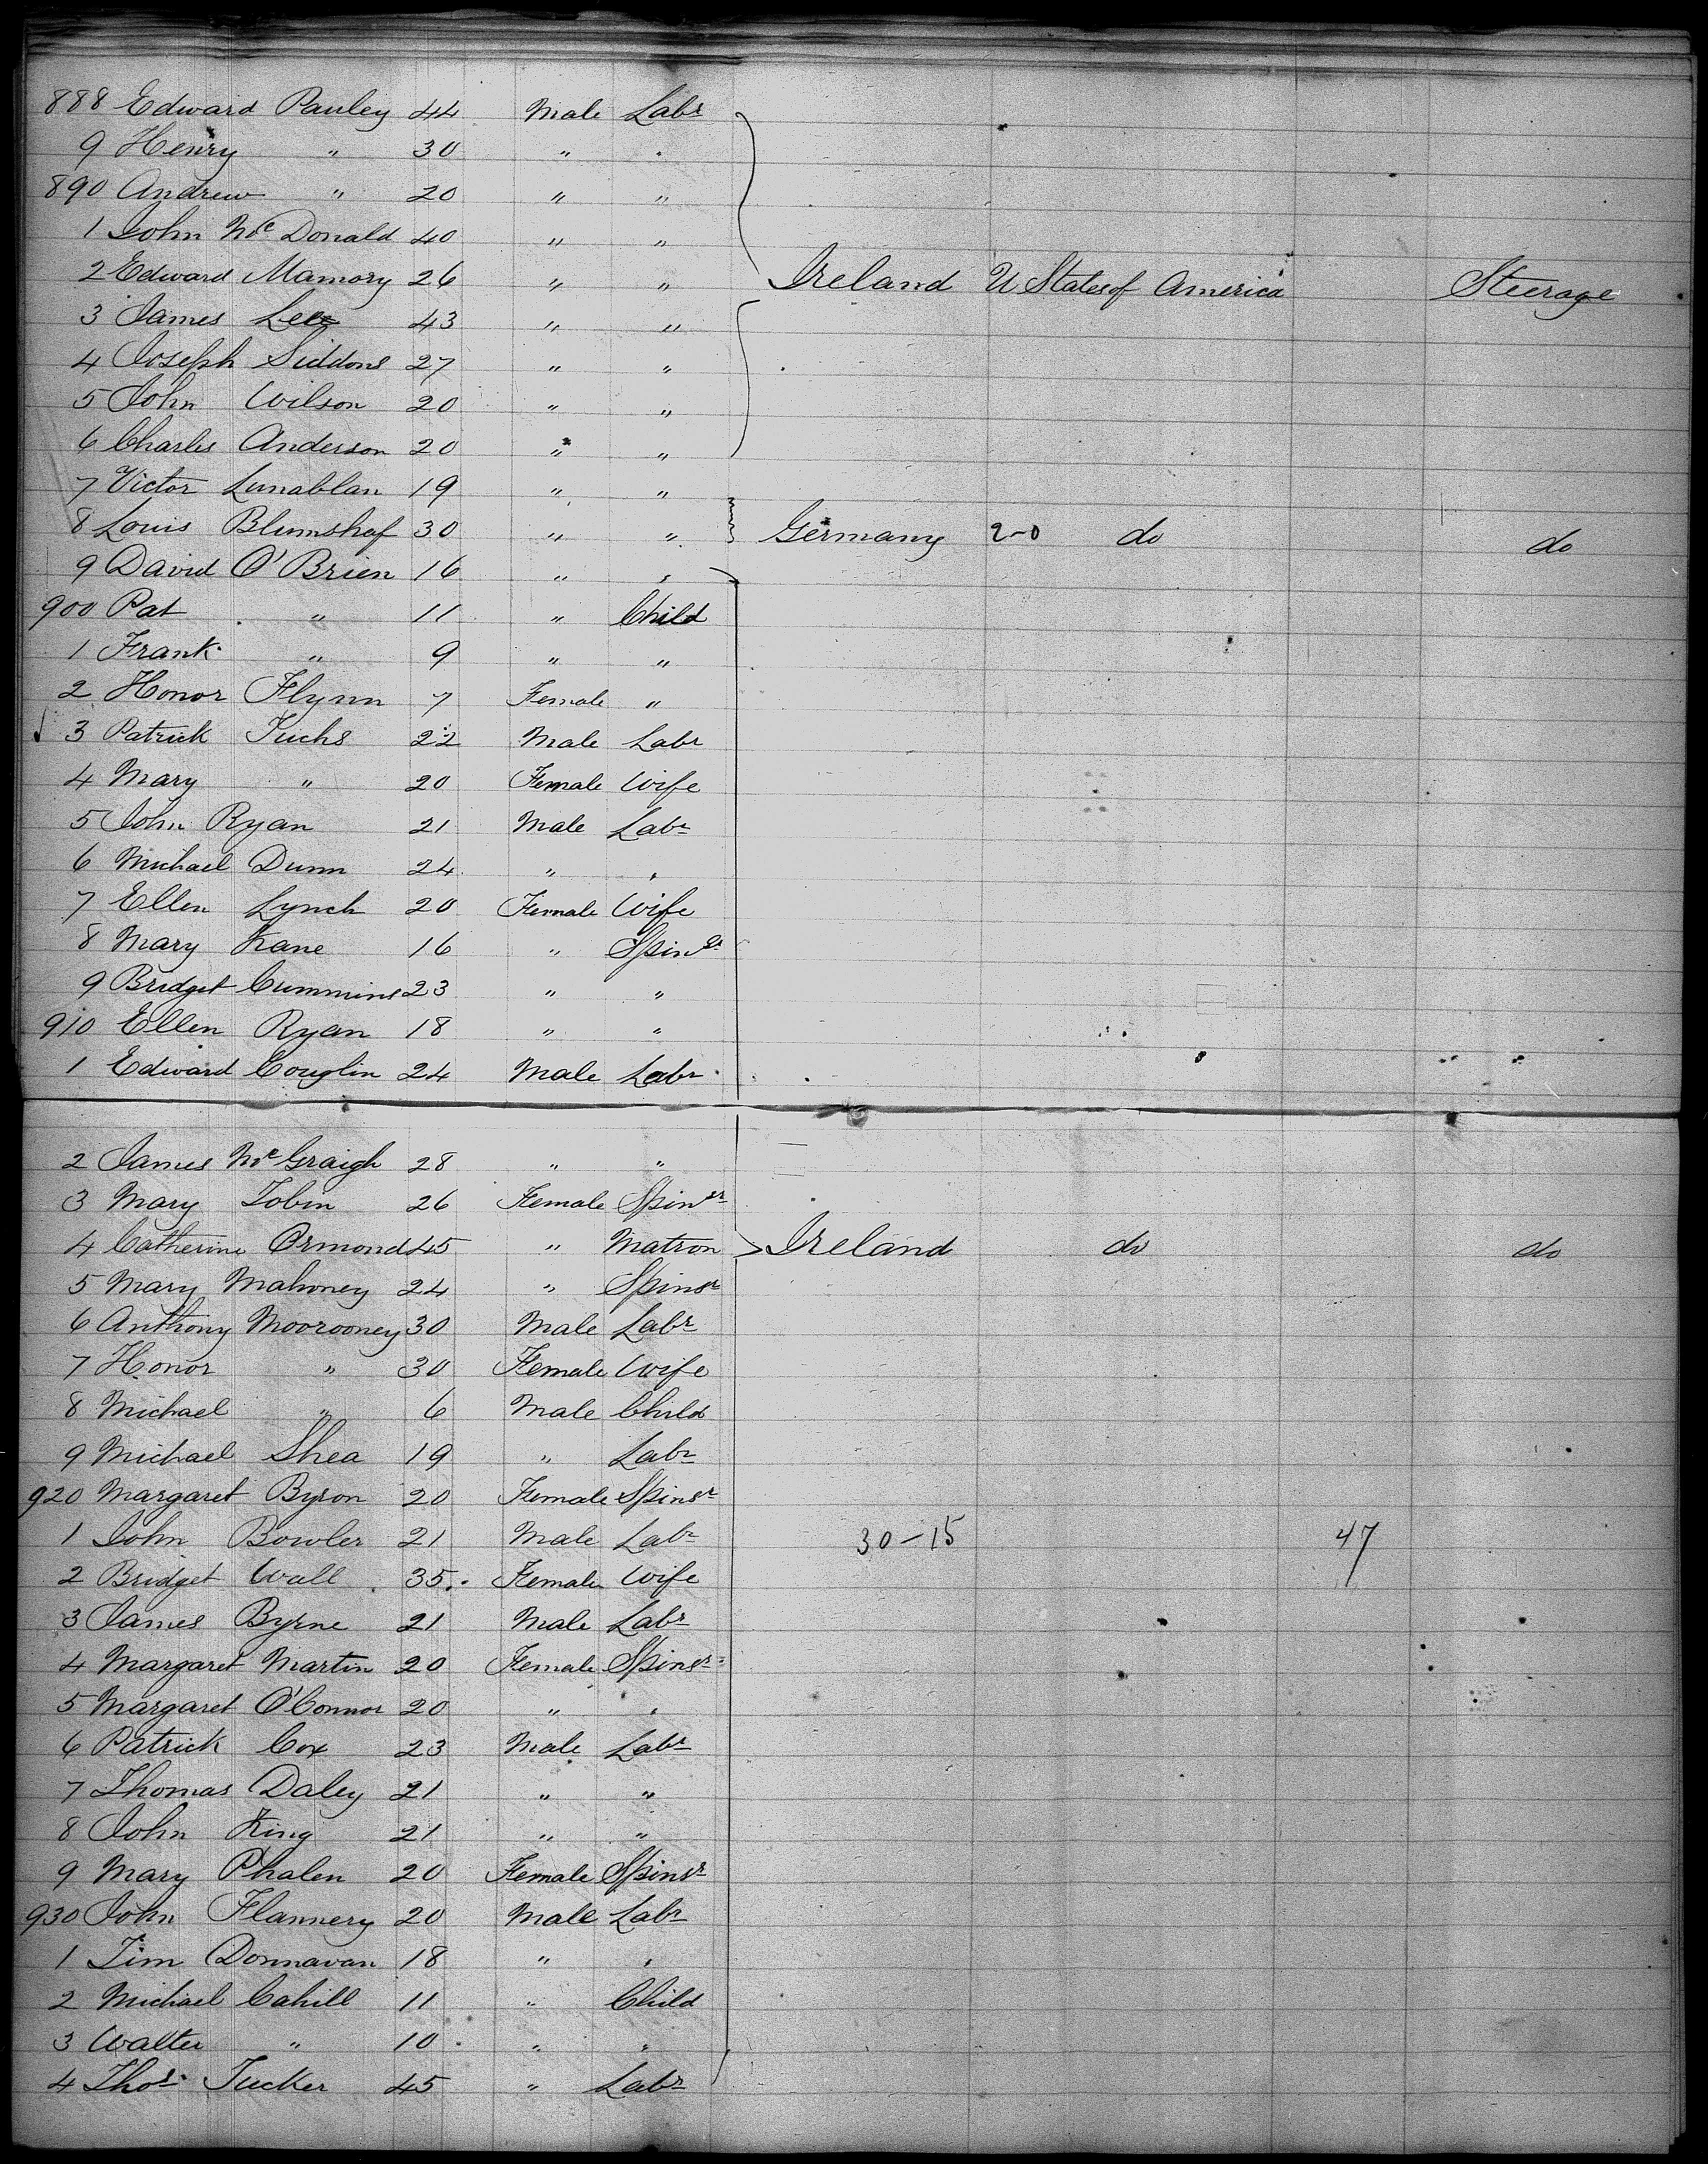 888 Edward Pauley 44 Male Labr
9 Henry " 30 " "
890 Andrew " 20 " "
1 John McDonald 40 " "
2 Edward Mamory 26 " " Ireland U States of America Steerage
3 James Lee 43 " "
4 Joseph Siddons 27 " "
5 John Wilson 20 " "
6 Charles Anderson 20 " "
7 Victor Lunablan 19 " "
8 Louis Blumshaf 30 " " Germany 2-0 do do
9 David O'Brien 16 " "
900 Pat " 11 " Child
1 Frank " 9 " "
2 Honor Flynn 7 Female "
3 Patrick Fuchs 22 Male Labr
4 Mary " 20 Female Wife
5 John Ryan 21 Male Labr
6 Michael Dunn 24 " "
7 Ellen Lynch 20 Female Wife
8 Mary Kane 16 " Spinsr
9 Bridget Cummins 23 " "
910 Ellen Ryan 18 " "
1 Edward Couglin 24 Male Labr
2 James McGraigh 28 " "
3 Mary Tobin 26 Female Spinsr
4 Catherine Ormond 45 " Matron Ireland do do
5 Mary Mahoney 24 " Spinsr
6 Anthony Moorooney 30 Male Labr
7 Honor " 30 Female Wife
8 Michael " 6 Male Child
9 Michael Shea 19 " Labr
920 Margaret Byron 20 Female Spinsr
1 John Bowler 21 Male Labr 30-15 47
2 Bridget Wall 35 Female Wife
3 James Byrne 21 Male Labr
4 Margaret Martin 20 Female Spinsr
5 Margaret O'Connor 20 " "
6 Patrick Cox 23 Male Labr
7 Thomas Daley 21 " "
8 John King 21 " "
9 Mary Phalen 20 Female Spinsr
930 John Flannery 20 Male Labr
1 Tim Donnavan 18 " "
2 Michael Cahill 11 " Child
3 Walter " 10 " "
4 Thos Tucker 45 " Labr